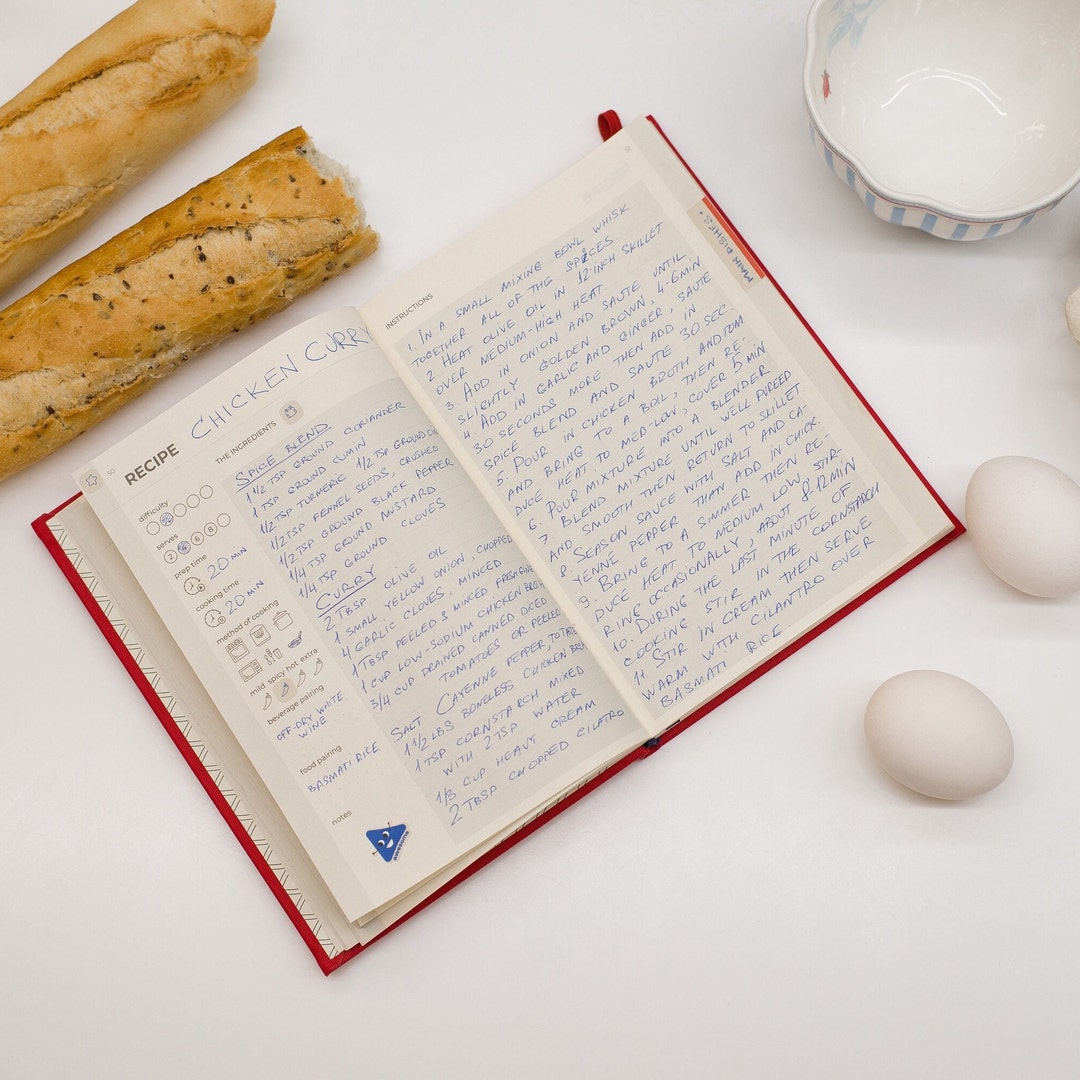 50
RECIPE CHICKEN CURRY
difficulty
serves
2 6 8
prep time
20 MIN
cooking time
20 MIN
method of cooking
mild spicy hot extra
beverage pairing
OFF-DRY WHITE
WINE
food pairing
BASMATI RICE
notes
awesome
THE INGREDIENTS
SPICE BLEND
1 1/2 TSP GROUND CORIANDER
1 TSP GROUND CUMIN
1/2 TSP TURMERIC 1/2 TSP GROUND
1/2 TSP FENNEL SEEDS, CRUSHED
1/2 TSP GROUND BLACK PEPPER
1/4 TSP GROUND MUSTARD
1/4 TSP GROUND CLOVES
CURRY
2 TBSP OLIVE OIL
1 SMALL YELLOW ONION, CHOPPED
4 GARLIC CLOVES, MINCED
1 TBSP PEELED & MINCED FRESH
1 CUP LOW-SODIUM CHICKEN
3/4 CUP DRAINED CANNED DICED
TOMATOES OR PEELED
SALT CAYENNE PEPPER, TO
1 1/2 LBS BONELESS CHICKEN
1 TSP CORNSTARCH MIXED
WITH 2 TSP WATER
1/3 CUP HEAVY CREAM
2 TBSP CHOPPED CILATRO
51
INSTRUCTIONS
1. IN A SMALL MIXING BOWL WHISK
TOGETHER ALL OF THE SPICES
2 HEAT OLIVE OIL IN 12-INCH SKILLET
OVER MEDIUM-HIGH HEAT.
3 ADD IN ONION AND SAUTE UNTIL
SLIGHTLY GOLDEN BROWN, 4-6 MIN
4. ADD IN GARLIC AND GINGER, SAUTE
30 SECONDS MORE THEN ADD IN
SPICE BLEND AND SAUTE 30 SEC.
5. POUR IN CHICKEN BROTH AND TOM
AND BRING TO A BOIL, THEN RE-
DUCE HEAT TO MED-LOW, COVER 5 MIN
6. POUR MIXTURE INTO A BLENDER
7 BLEND MIXTURE UNTIL WELL PUREED
AND SMOOTH THEN RETURN TO SKILLET
8. SEASON SAUCE WITH SALT AND CA-
YENNE PEPPER THAN ADD IN CHICK.
9. BRING TO A SIMMER THEN RE-
DUCE HEAT TO MEDIUM LOW, STIR-
RING OCCASIONALLY, ABOUT 8-12 MIN
10. DURING THE LAST MINUTE OF
COOKING STIR IN THE CORNSTARCH
11. STIR IN CREAM THEN SERVE
WARM WITH CILANTRO OVER
BASMATI RICE.
MAIN DISHES